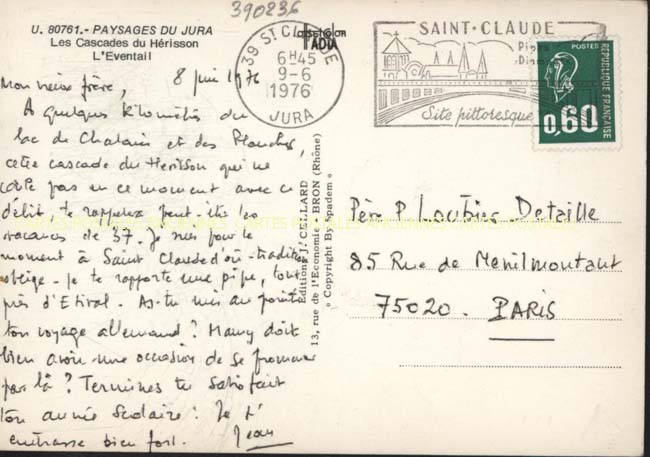 390236
U. 80761.- PAYSAGES DU JURA
Les Cascades du Hérisson
L'Eventail
39 ST CLAUDE
6H45
9-6
1976
JURA
SAINT-CLAUDE
Pipes
Diam
Site pittoresque
POSTES
0,60
REPUBLIQUE FRANÇAISE
Mon vieux frère, 8 juin 1976
A quelques kilomètres du
lac de Chalain et des Planches,
cette cascade du Herisson qui ne
coule pas en ce moment avec ce
débit te rappelera peut-être les
vacances de 37. Je suis pour le
moment à Saint Claude d'où - tradition
oblige - je te rapporte une pipe, tout
près d'Etival. As-tu mis au point
ton voyage allemand? Many doit
bien avoir une occasion de se promener
par là? Termines tu satisfait
ton année scolaire? Je t'
embrasse bien fort. Jean
Editions J. CELLARD
13, rue de l'Economie - BRON (Rhône)
« Copyright By Spadem »
Père P Loubier Detaille
85 Rue de Menilmontant
75020. PARIS